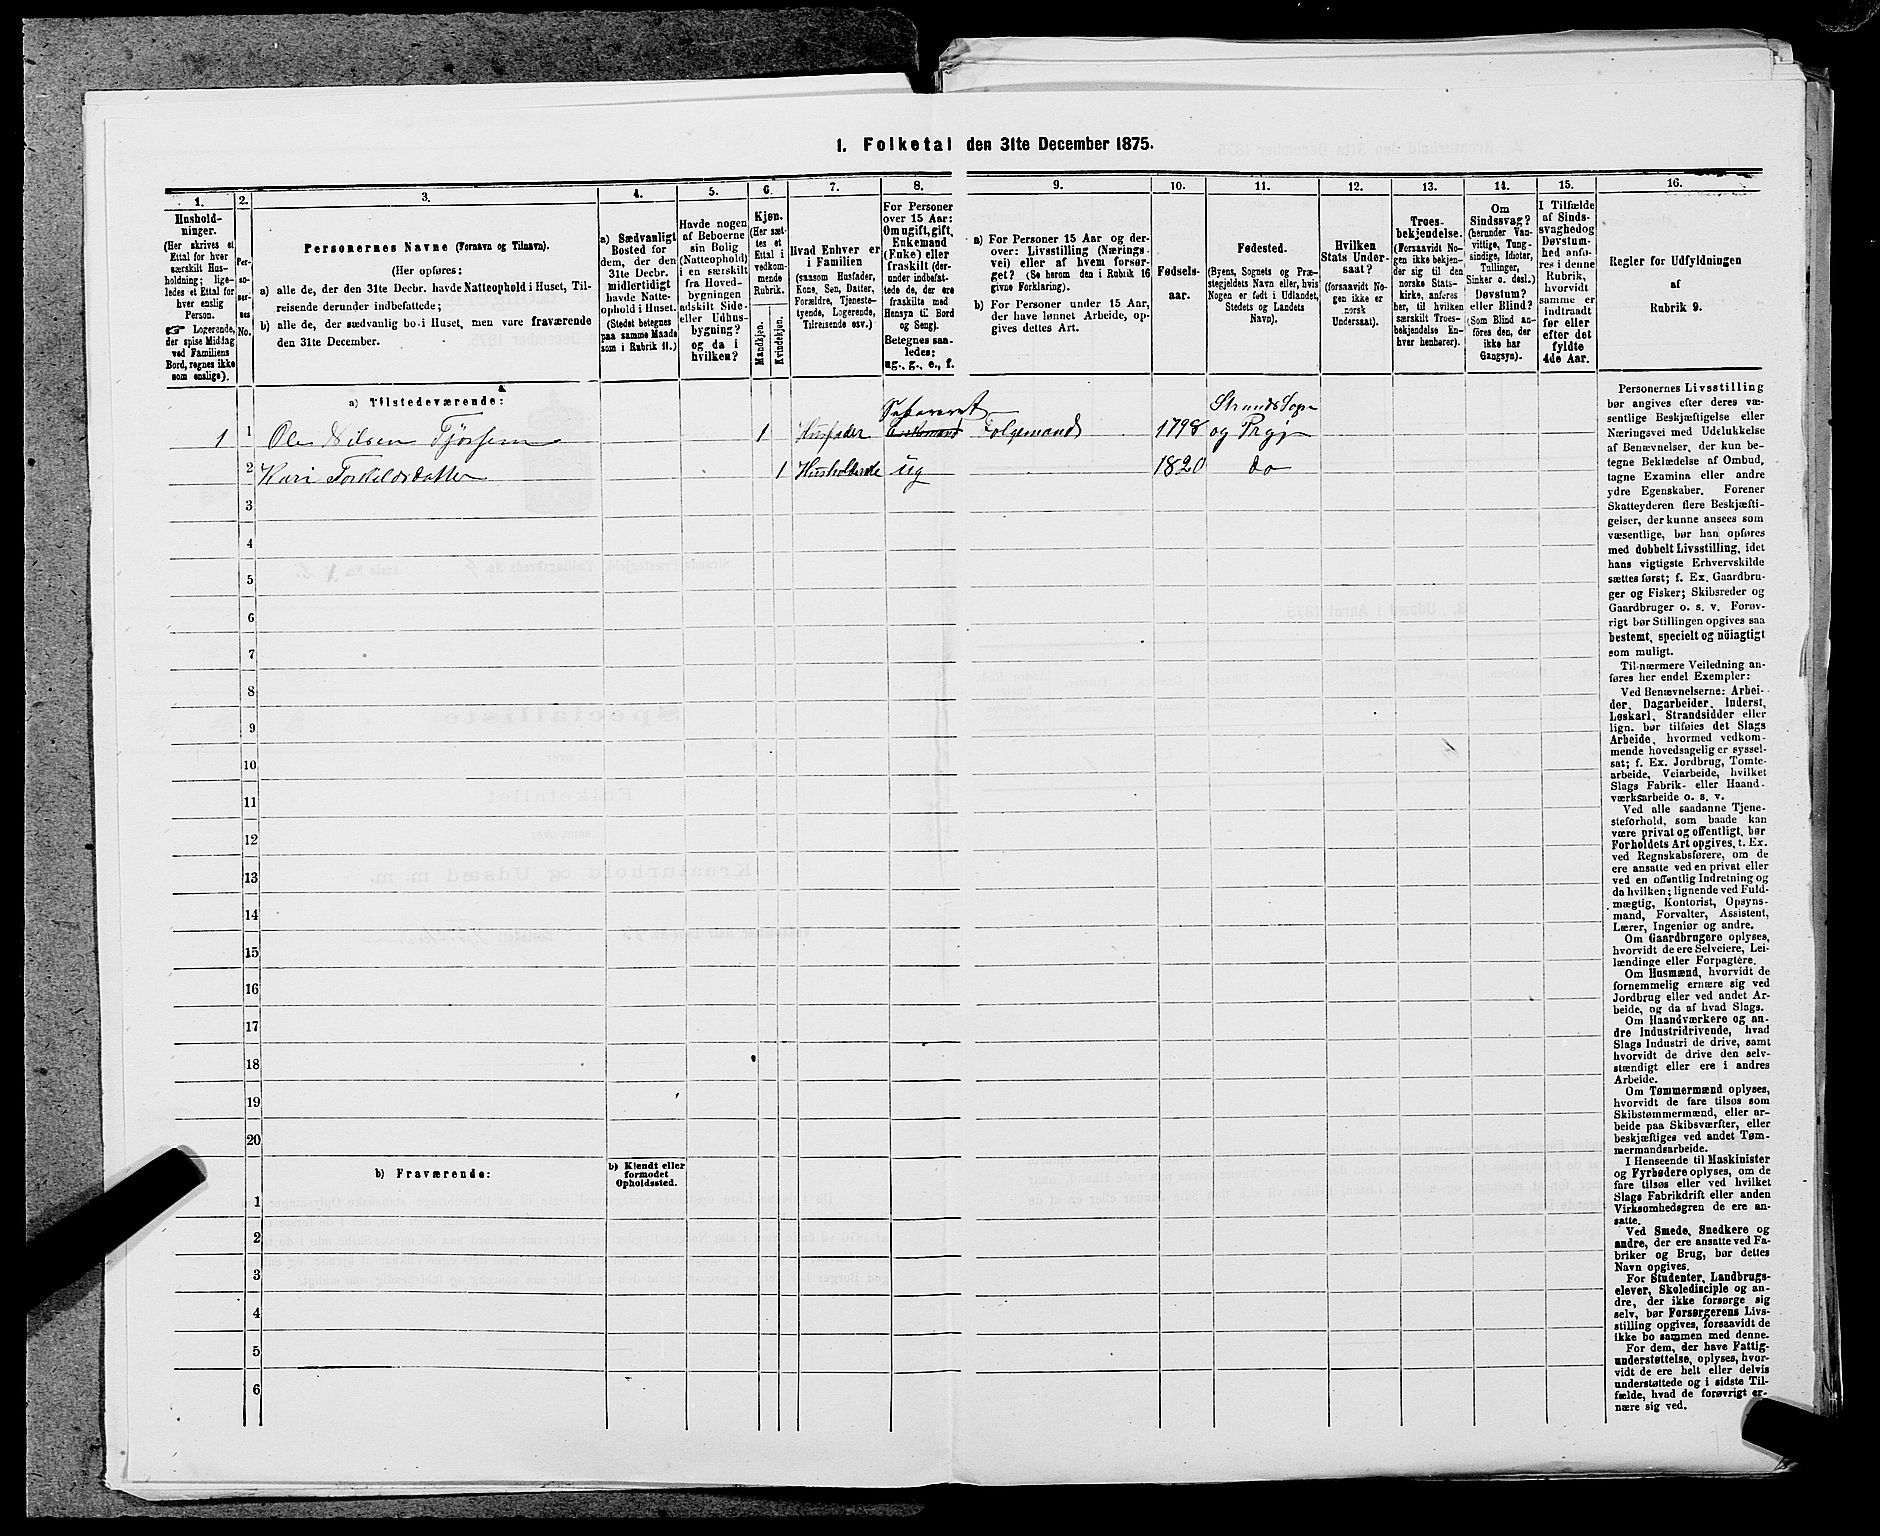 1. Folketal den 31te December 1875.
1.
2.
3.
4.
5.
6.
7.
8.
9.
10.
11.
12.
13.
14.
15.
16.
Hushold-
ninger.
(Her skrives et
Ettal for hver
særskilt Hus-
holdning; lige-
ledes et Ettal for
hver enslig
Person.
☞ Logerende,
der spise Middag
ved Familiens
Bord, regnes ikke
som enslige).
Per-
so-
ner-
nes
No.
Personernes Navne (Fornavn og Tilnavn).
(Her opføres:
a) alle de, der den 31te Decbr. havde Natteophold i Huset, Til-
reisende derunder indbefattede;
b) alle de, der sædvanlig bo i Huset, men vare fraværende
den 31te December.
a) Sædvanligt
Bosted for
dem, der den
31te Decbr.
midlertidigt
havde Natte-
ophold i Huset.
(Stedet betegnes
paa samme Maade
som i Rubrik 11.)
Havde nogen
af Beboerne
sin Bolig
(Natteophold)
i en særskilt
fra Hoved-
bygningen
adskilt Side-
eller Udhus-
bygning?
og da i
hvilken?
Kjøn.
(Her sæt-
tes et
Ettal i
vedkom-
mende
Rubrik.
Mandkjøn.
Kvindekjøn.
Hvad Enhver er
i Familien
(saasom Husfader,
Kone, Søn, Datter,
Forældre, Tjeneste-
tyende, Logerende,
Tilreisende osv.)
For Personer
over 15 Aar:
Om ugift, gift,
Enkemand
(Enke) eller
fraskilt (der-
under indbefat-
tede de, der ere
fraskilte med
Hensyn til Bord
og Seng).
Betegnes saa-
ledes:
ug., g., e., f.
a) For Personer 15 Aar og der-
over: Livsstilling (Nærings-
vei) eller af hvem forsør-
get? (Se herom den i Rubrik 16
givne Forklaring).
b) For Personer under 15 Aar,
der have lønnet Arbeide, op-
gives dettes Art.
Fødsels-
aar.
Fødested.
(Byens, Sognets og Præ-
stegjeldets Navn eller, hvis
Nogen er født i Udlandet,
Stedets og Landets
Navn).
Hvilken
Stats Under-
saat?
(forsaavidt No-
gen ikke er
norsk
Undersaat).
Troes-
bekjendelse.
(Forsaavidt No-
gen ikke bekjen-
der sig til den
norske Stats-
kirke, anføres
her, til hvilken
særskilt Troes-
bekjendelse En-
hver henhører).
Om
Sindssvag?
(herunder Van-
vittige, Tung-
sindige, Idioter,
Tullinger,
Sinker o. desl.)
Døvstum?
eller Blind?
(Som Blind an-
føres den, der
ikke har
Gangsyn).
I Tilfælde
af Sinds-
svaghed og
Døvstum-
hed anfø-
res i denne
Rubrik,
hvorvidt
samme er
indtraadt
før eller
efter det
fyldte
4de Aar.
Regler for Udfyldningen
af
Rubrik 9.
a) Tilstedeværende:
1 1 Ole Nilsen Tjössem 1 Husfader Separeret Folgemand 1798 Strands Sogn
og Prgj
2 Kari Torkelsdatter 1 Husholderske ug 1820 do
3
4
5
6
7
8
9
10
11
12
13
14
15
16
17
18
19
20
b) Fraværende:
b) Kjendt eller
formodet
Opholdssted.
1
2
3
4
5
6
Personernes Livsstilling
bør angives efter deres væ-
sentlige Beskjæftigelse eller
Næringsvei med Udelukkelse
af Benævnelser, der kun be-
tegne Beklædelse af Ombud,
tagne Examina eller andre
ydre Egenskaber. Forener
Skatteyderen flere Beskjæfti-
gelser, der kunne ansees som
væsentlige, bør han opføres
med dobbelt Livsstilling, idet
hans vigtigste Erhvervskilde
sættes først; f. Ex. Gaardbru-
ger og Fisker; Skibsreder og
Gaardbruger o. s. v. Forøv-
rigt bør Stillingen opgives saa
bestemt, specielt og nöiagtigt
som muligt.
Til nærmere Veiledning an-
føres her endel Exempler:
Ved Benævnelserne: Arbei-
der, Dagarbeider, Inderst,
Løskarl, Strandsidder eller
lign. bør tilføies det Slags
Arbeide, hvormed vedkom-
mende hovedsagelig er syssel-
sat; f. Ex. Jordbrug, Tomte-
arbeide, Veiarbeide, hvilket
Slags Fabrik- eller Haand-
værksarbeide o. s. v.
Ved alle saadanne Tjene-
steforhold, som baade kan
være privat og offentligt, bør
Forholdets Art opgives, t. Ex.
ved Regnskabsførere, om de
ere ansatte ved en privat eller
ved en offentlig Indretning og
da hvilken; lignende ved Fuld-
mægtig, Kontorist, Opsyns-
mand, Forvalter, Assistent,
Lærer, Ingeniør og andre.
Om Gaardbrugere oplyses,
hvorvidt de ere Selveiere, Lei-
lændinge eller Forpagtere.
Om Husmænd, hvorvidt de
fornemmelig ernære sig ved
Jordbrug eller ved andet Ar-
beide, og da af hvad Slags.
Om Haandværkere og an-
dre Industridrivende, hvad
Slags Industri de drive, samt
hvorvidt de drive den selv-
stændigt eller ere i andres
Arbeide.
Om Tømmermænd oplyses,
hvorvidt de fare tilsøs som
Skibstømmermænd, eller ar-
beide paa Skibsværfter, eller
beskjæftiges ved andet Tøm-
mermandsarbeide.
I Henseende til Maskinister
og Fyrbødere oplyses, om de
fare tilsøs eller ved hvilket
Slags Fabrikdrift eller anden
Virksomhedsgren de ere an-
satte.
Ved Smede, Snedkere og
andre, der ere ansatte ved Fa-
briker og Brug, bør dettes
Navn opgives.
For Studenter, Landbrugs-
elever, Skoledisciple og an-
dre, der ikke forsørge sig
selv, bør Forsørgerens Livs-
stilling opgives, forsaavidt de
ikke bo sammen med denne.
For dem, der have Fattig-
understøttelse, oplyses, hvor-
vidt de ere helt eller delvis
understøttede og i sidste Til-
fælde, hvad de forøvrigt er-
nære sig ved.